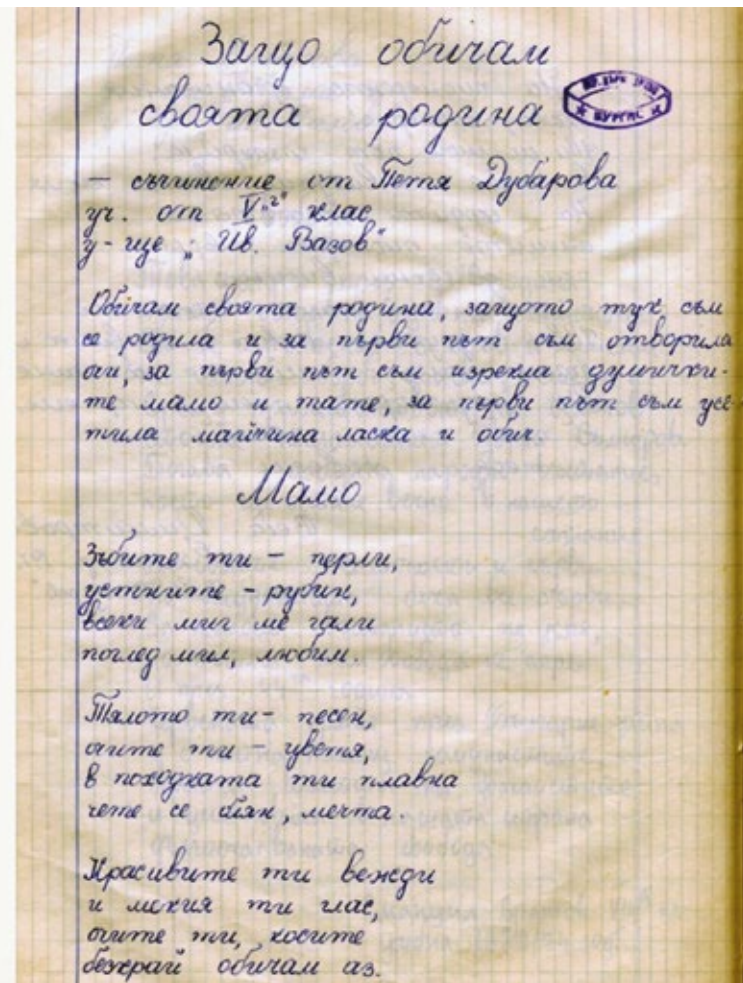 Защо обичам
своята родина
БУРГАС
– съчинение от Петя Дубарова
уч. от V "г" клас
у-ще „Ив. Вазов"
Обичам своята родина, защото тук съм
се родила и за първи път съм отворила
очи, за първи път съм изрекла думички-
те мамо и тате, за първи път съм усе-
тила майчина ласка и обич.
Мамо
Зъбите ти – перли,
устните – рубин,
всеки миг ме гали
поглед мил, любим.
Тялото ти – песен,
очите ти – цветя,
в походката ти плавна
чете се блян, мечта.
Красивите ти вежди
и мекия ти глас,
очите ти, косите
безкрай обичам аз.